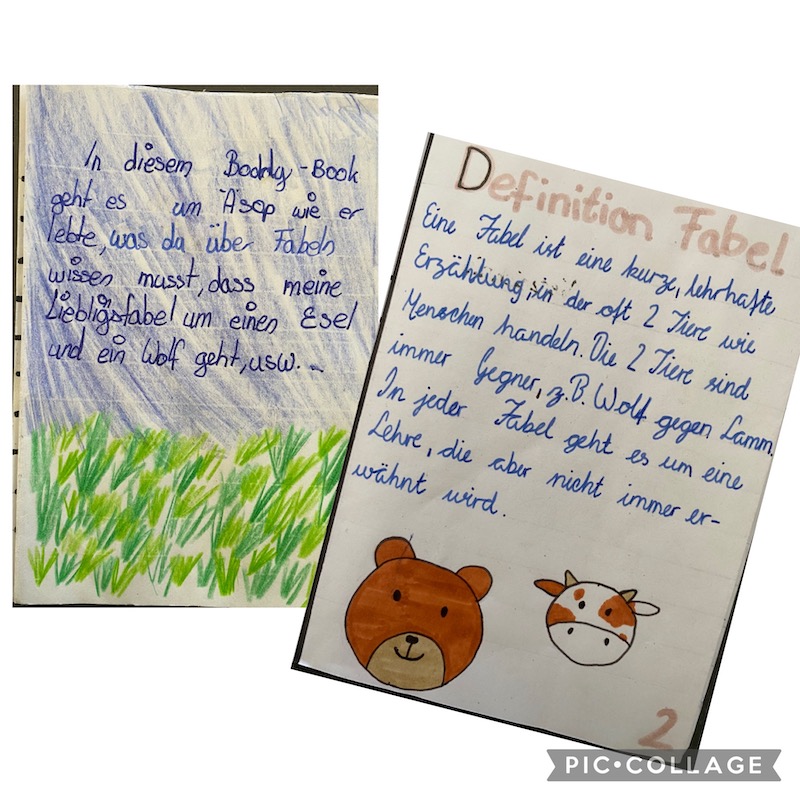 In diesem Boddy-Book
geht es um Äsop wie er
lebte, was da über Fabeln
wissen musst, dass meine
Liebligsfabel um einen Esel
und ein Wolf geht, usw...
Definition Fabel
Eine Fabel ist eine kurze, lehrhafte
Erzählung, in der oft 2 Tiere wie
Menschen handeln. Die 2 Tiere sind
immer Gegner, z.B. Wolf gegen Lamm.
In jeder Fabel geht es um eine
Lehre, die aber nicht immer er-
wähnt wird.
2
PIC•COLLAGE